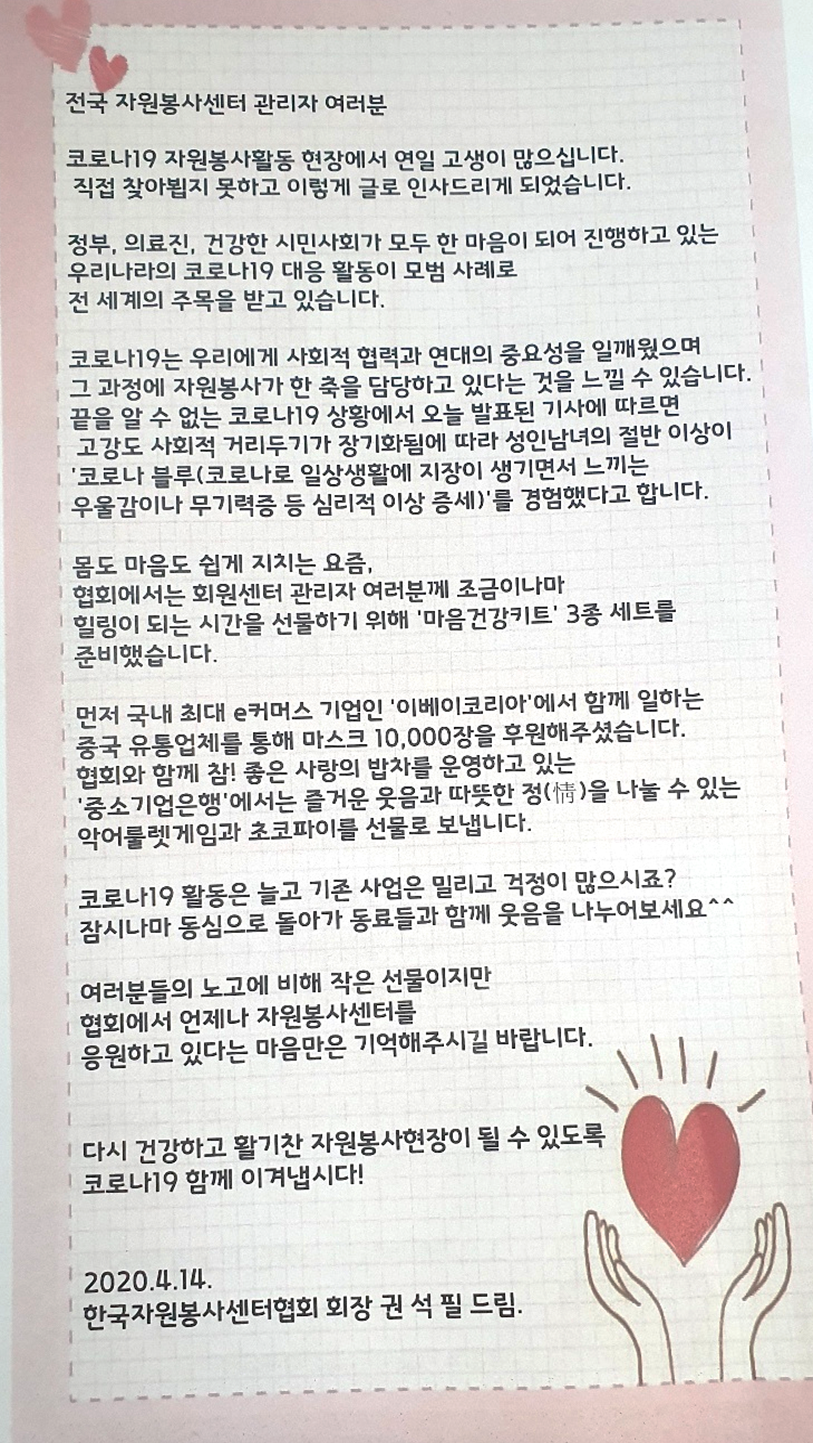 전국 자원봉사센터 관리자 여러분
코로나19 자원봉사활동 현장에서 연일 고생이 많으십니다.
직접 찾아뵙지 못하고 이렇게 글로 인사드리게 되었습니다.
정부, 의료진, 건강한 시민사회가 모두 한 마음이 되어 진행하고 있는
우리나라의 코로나19 대응 활동이 모범 사례로
전 세계의 주목을 받고 있습니다.
코로나19는 우리에게 사회적 협력과 연대의 중요성을 일깨웠으며
그 과정에 자원봉사가 한 축을 담당하고 있다는 것을 느낄 수 있습니다.
끝을 알 수 없는 코로나19 상황에서 오늘 발표된 기사에 따르면
고강도 사회적 거리두기가 장기화됨에 따라 성인남녀의 절반 이상이
'코로나 블루(코로나로 일상생활에 지장이 생기면서 느끼는
우울감이나 무기력증 등 심리적 이상 증세)'를 경험했다고 합니다.
몸도 마음도 쉽게 지치는 요즘,
협회에서는 회원센터 관리자 여러분께 조금이나마
힐링이 되는 시간을 선물하기 위해 '마음건강키트' 3종 세트를
준비했습니다.
먼저 국내 최대 e커머스 기업인 '이베이코리아'에서 함께 일하는
중국 유통업체를 통해 마스크 10,000장을 후원해주셨습니다.
협회와 함께 참! 좋은 사랑의 밥차를 운영하고 있는
'중소기업은행'에서는 즐거운 웃음과 따뜻한 정(情)을 나눌 수 있는
악어룰렛게임과 초코파이를 선물로 보냅니다.
코로나19 활동은 늘고 기존 사업은 밀리고 걱정이 많으시죠?
잠시나마 동심으로 돌아가 동료들과 함께 웃음을 나누어보세요^^
여러분들의 노고에 비해 작은 선물이지만
협회에서 언제나 자원봉사센터를
응원하고 있다는 마음만은 기억해주시길 바랍니다.
다시 건강하고 활기찬 자원봉사현장이 될 수 있도록
코로나19 함께 이겨냅시다!
2020.4.14.
한국자원봉사센터협회 회장 권 석 필 드림.